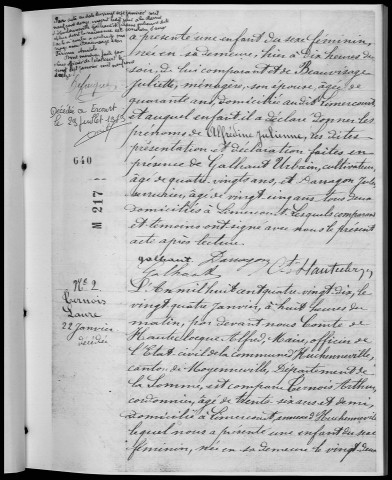 a présenté une enfant du sexe féminin,
née en sa demeure, hier à dix heures du
soir, de lui comparant et de Beauvisage
Juliette, ménagère, son épouse, âgée de
quarante ans, domiciliée au dit Limercourt
et auquel enfant il a déclaré donner les
prénoms de Alfrédine Julienne, les dites
présentation et déclaration faites en
présence de Galhaut Urbain, cultivateur,
âgé de quatre vingt ans, et Darragon Jules
serrurier, âgé de vingt un ans tous deux
domiciliés à Limercourt. Lesquels comparant
et témoins ont signé avec nous le présent
acte après lecture.
Décédée à
le 23 juillet
640
M 217
galhaut Darragon
Galhaut Cte Hautecloc
No 2
Cernois
Laure
22 Janvier
décédée
L'An mil huit cent quatre vingt dix, le
vingt quatre Janvier, à huit heures du
matin, par devant nous Comte de
Hauteclocque Alfred, Maire, officier de
l'Etat civil de la commune d'Huchenneville
canton de Moyenneville, Département de
la Somme, est comparu Cernois Arthur
cordonnier, âgé de trente six ans et demi,
domicilié à Limercourt, commune d'Huchenneville
lequel nous a présenté une enfant du sexe
féminin, née en sa demeure le vingt deux